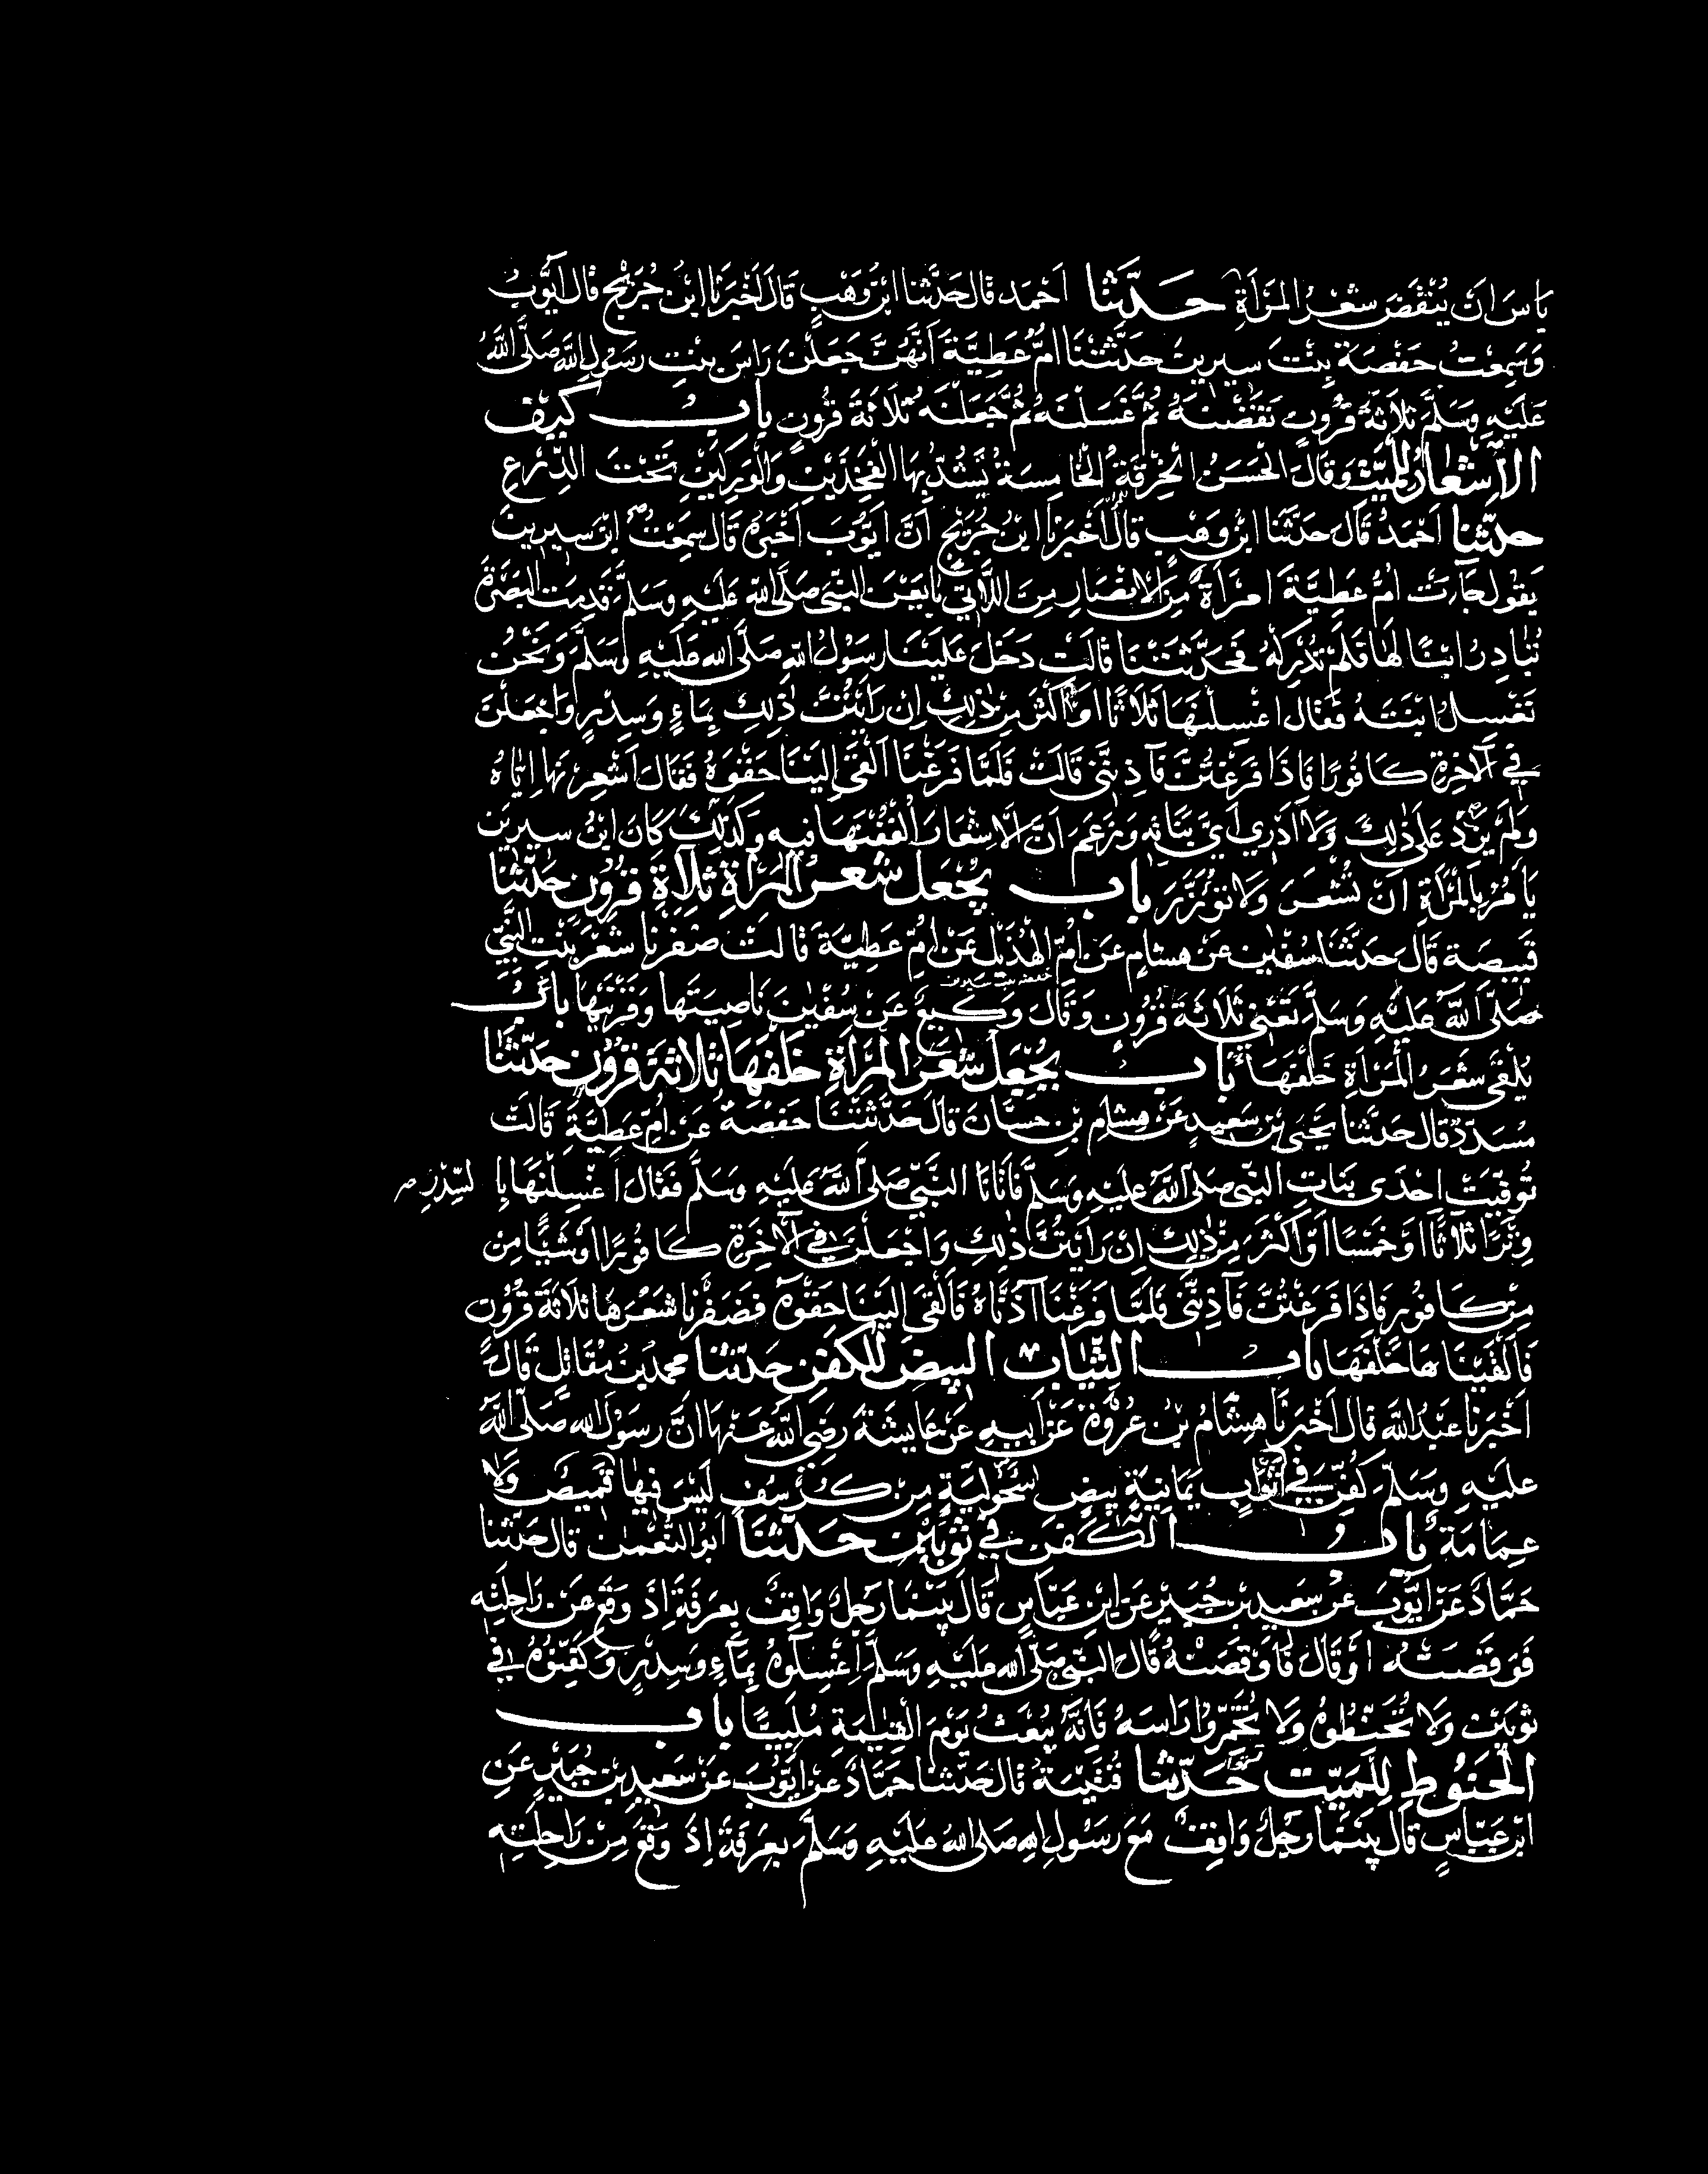 ياس ان ينقض شعر المرأة حدثنا احمد قال حدثنا ابن وهب قال اخبرنا ابن جريج قال ايوب
وسمعت حفصة بنت سيرين حدثتنا ام عطية انهن جعلن راس بنت رسول الله صلى الله
عليه وسلم ثلاثة قرون نقضنه ثم غسلنه ثم جعلنه ثلاثة قرون باب كيف
الاشعار للميت وقال الحسن الخرقة الخامسة يشد بها الفخذين والوركين تحت الدرع
حدثنا احمد قال حدثنا ابن وهب قال اخبرنا ابن جريج ان ايوب اخبره قال سمعت ابن سيرين
يقول جاءت ام عطية امراة من الانصار من اللاتي بايعن النبي صلى الله عليه وسلم قدمت البصرة
تبادر ابنا لها فلم تدركه فحدثتنا قالت دخل علينا رسول الله صلى الله عليه وسلم ونحن
نغسل ابنته فقال اغسلنها ثلاثا او اكثر من ذلك ان رايتن ذلك بماء وسدر واجعلن
في الآخرة كافورا فاذا فرغتن فآذنني قالت فلما فرغنا القى الينا حقوه فقال اشعرنها اياه
ولم يزد على ذلك ولا ادري اي بناته وزعم ان الاشعار الففنها فيه وكذلك كان ابن سيرين
يامر بالمرأة ان تشعر ولا تؤزر باب يجعل شعر المرأة ثلاثة قرون حدثنا
قبيصة قال حدثنا سفين عن هشام عن ام الهذيل عن ام عطية قالت ضفرنا شعر بنت النبي
صلى الله عليه وسلم تعني ثلاثة قرون وقال وكيع عن سفين ناصيتها وقرنيها باب
يلقى شعر المرأة خلفها باب يجعل شعر المرأة خلفها ثلاثة قرون حدثنا
مسدد قال حدثنا يحيى بن سعيد عن هشام بن حسان قال حدثتنا حفصة عن ام عطية قالت
توفيت احدى بنات النبي صلى الله عليه وسلم فاتانا النبي صلى الله عليه وسلم فقال اغسلنها بالسدر
وترا ثلاثا او خمسا او اكثر من ذلك ان رايتن ذلك واجعلن في الآخرة كافورا او شيا من
من كافور فاذا فرغتن فآذنني فلما فرغنا آذناه فالقى الينا حقوه فضفرنا شعرها ثلاثة قرون
فالقيناها خلفها باب الثياب البيض للكفن حدثنا محمد بن مقاتل قال
اخبرنا عبد الله قال اخبرنا هشام بن عروة عن ابيه عن عايشة رضي الله عنها ان رسول الله صلى الله
عليه وسلم كفن في اثواب يمانية بيض سحولية من كرسف ليس فيها قميص ولا
عمامة باب الكفن في ثوبين حدثنا ابو النعمن قال حدثنا
حماد عن ايوب عن سعيد بن جبير عن ابن عباس قال بينما رجل واقف بعرفة اذ وقع عن راحلته
فوقصته او قال فاوقصته قال النبي صلى الله عليه وسلم اغسلوه بماء وسدر وكفنوه في
ثوبين ولا تحنطوه ولا تخمروا راسه فانه يبعث يوم القيمة ملبيا باب
الحنوط للميت حدثنا قتيبة قال حدثنا حماد عن ايوب عن سعيد بن جبير عن
ابن عباس قال بينما رجل واقف مع رسول الله صلى الله عليه وسلم بعرفة اذ وقع من راحلته